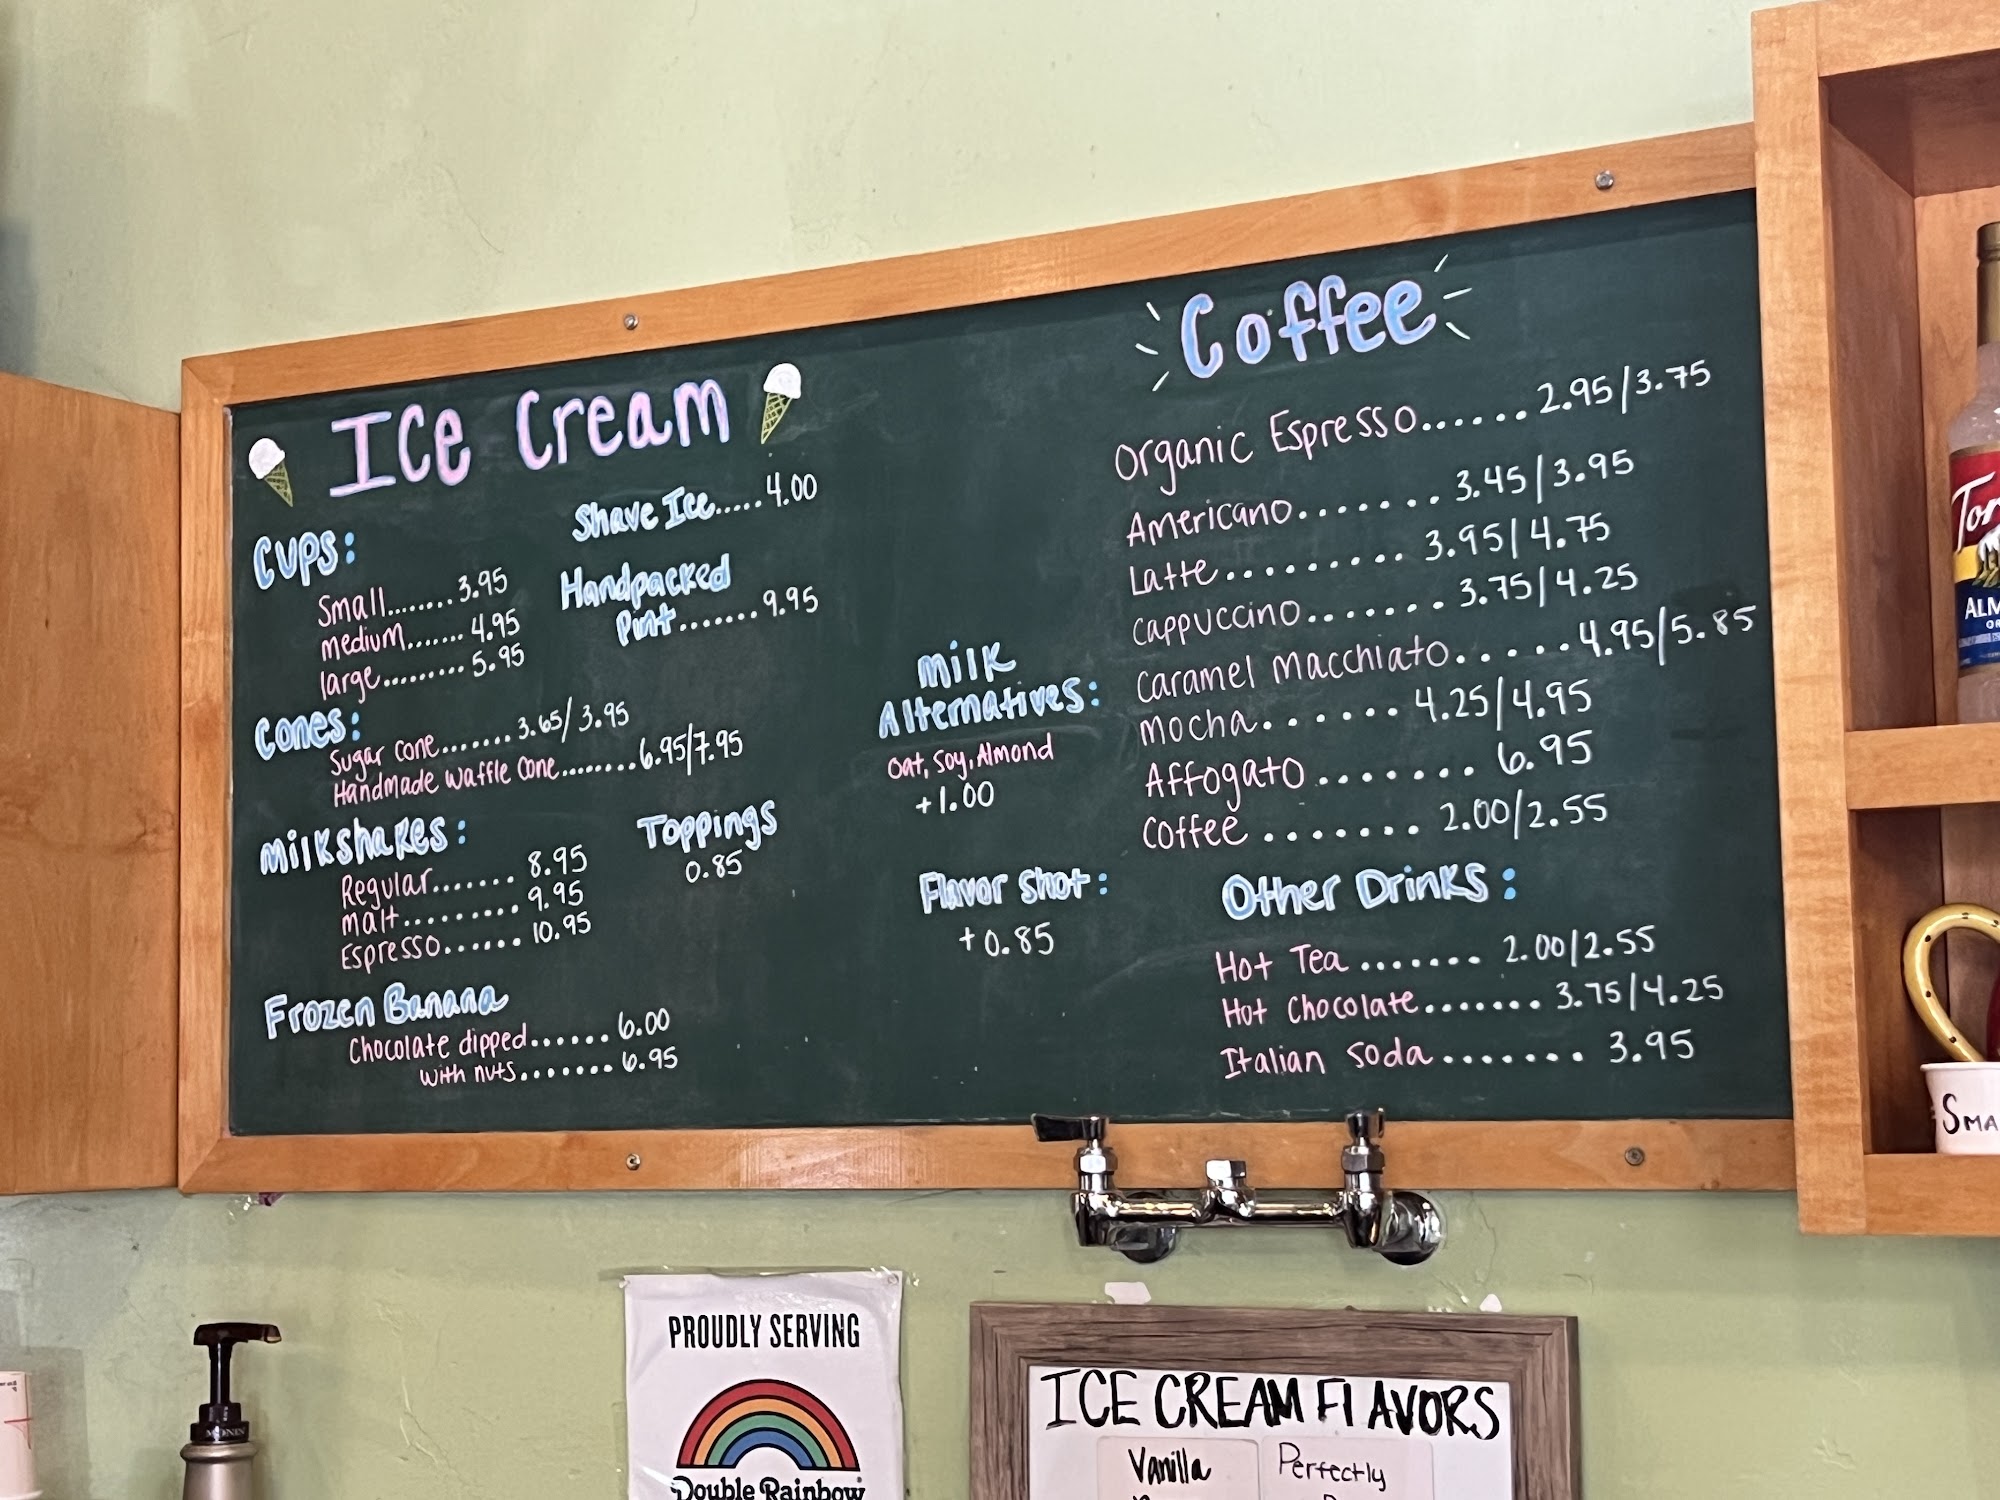 Ice Cream
Shave Ice.....4.00
Cups:
Small........3.95
medium.......4.95
large.........5.95
Handpacked
Pint.......9.95
Cones:
Sugar cone.......3.65/3.95
Handmade waffle cone........6.95/7.95
Milkshakes:
Regular.......8.95
malt.........9.95
Espresso......10.95
Toppings
0.85
Frozen Banana
Chocolate dipped......6.00
with nuts.......6.95
Milk
Alternatives:
Oat, Soy, Almond
+1.00
Flavor Shot:
+0.85
Coffee
Organic Espresso......2.95/3.75
Americano.......3.45/3.95
Latte.........3.95/4.75
Cappuccino.......3.75/4.25
Caramel Macchiato.....4.95/5.85
Mocha......4.25/4.95
Affogato.......6.95
Coffee.......2.00/2.55
Other Drinks:
Hot Tea.......2.00/2.55
Hot Chocolate.......3.75/4.25
Italian Soda.......3.95
Tor
ALM
SMA
PROUDLY SERVING
Double Rainbow
ICE CREAM FLAVORS
Vanilla
Perfectly